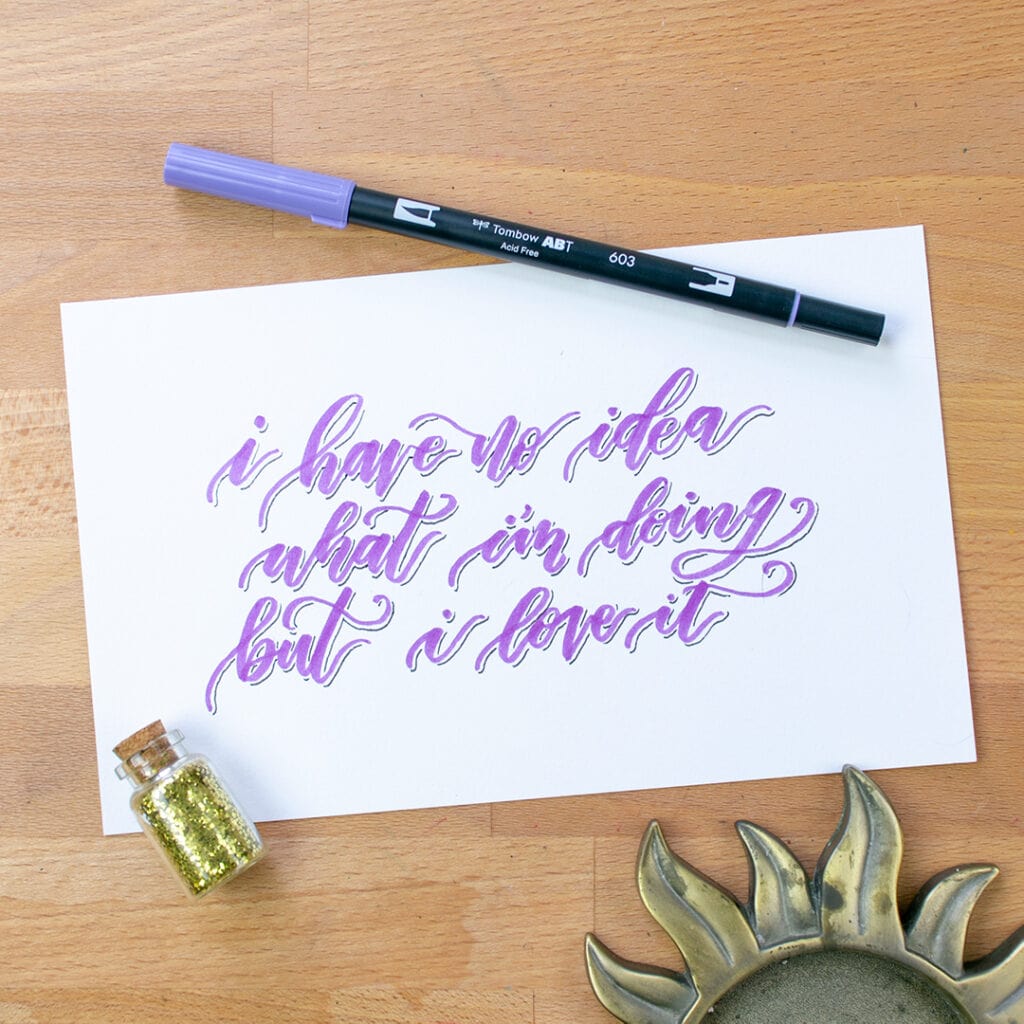 Tombow ABT
Acid Free
603
i have no idea
what i'm doing
but i love it